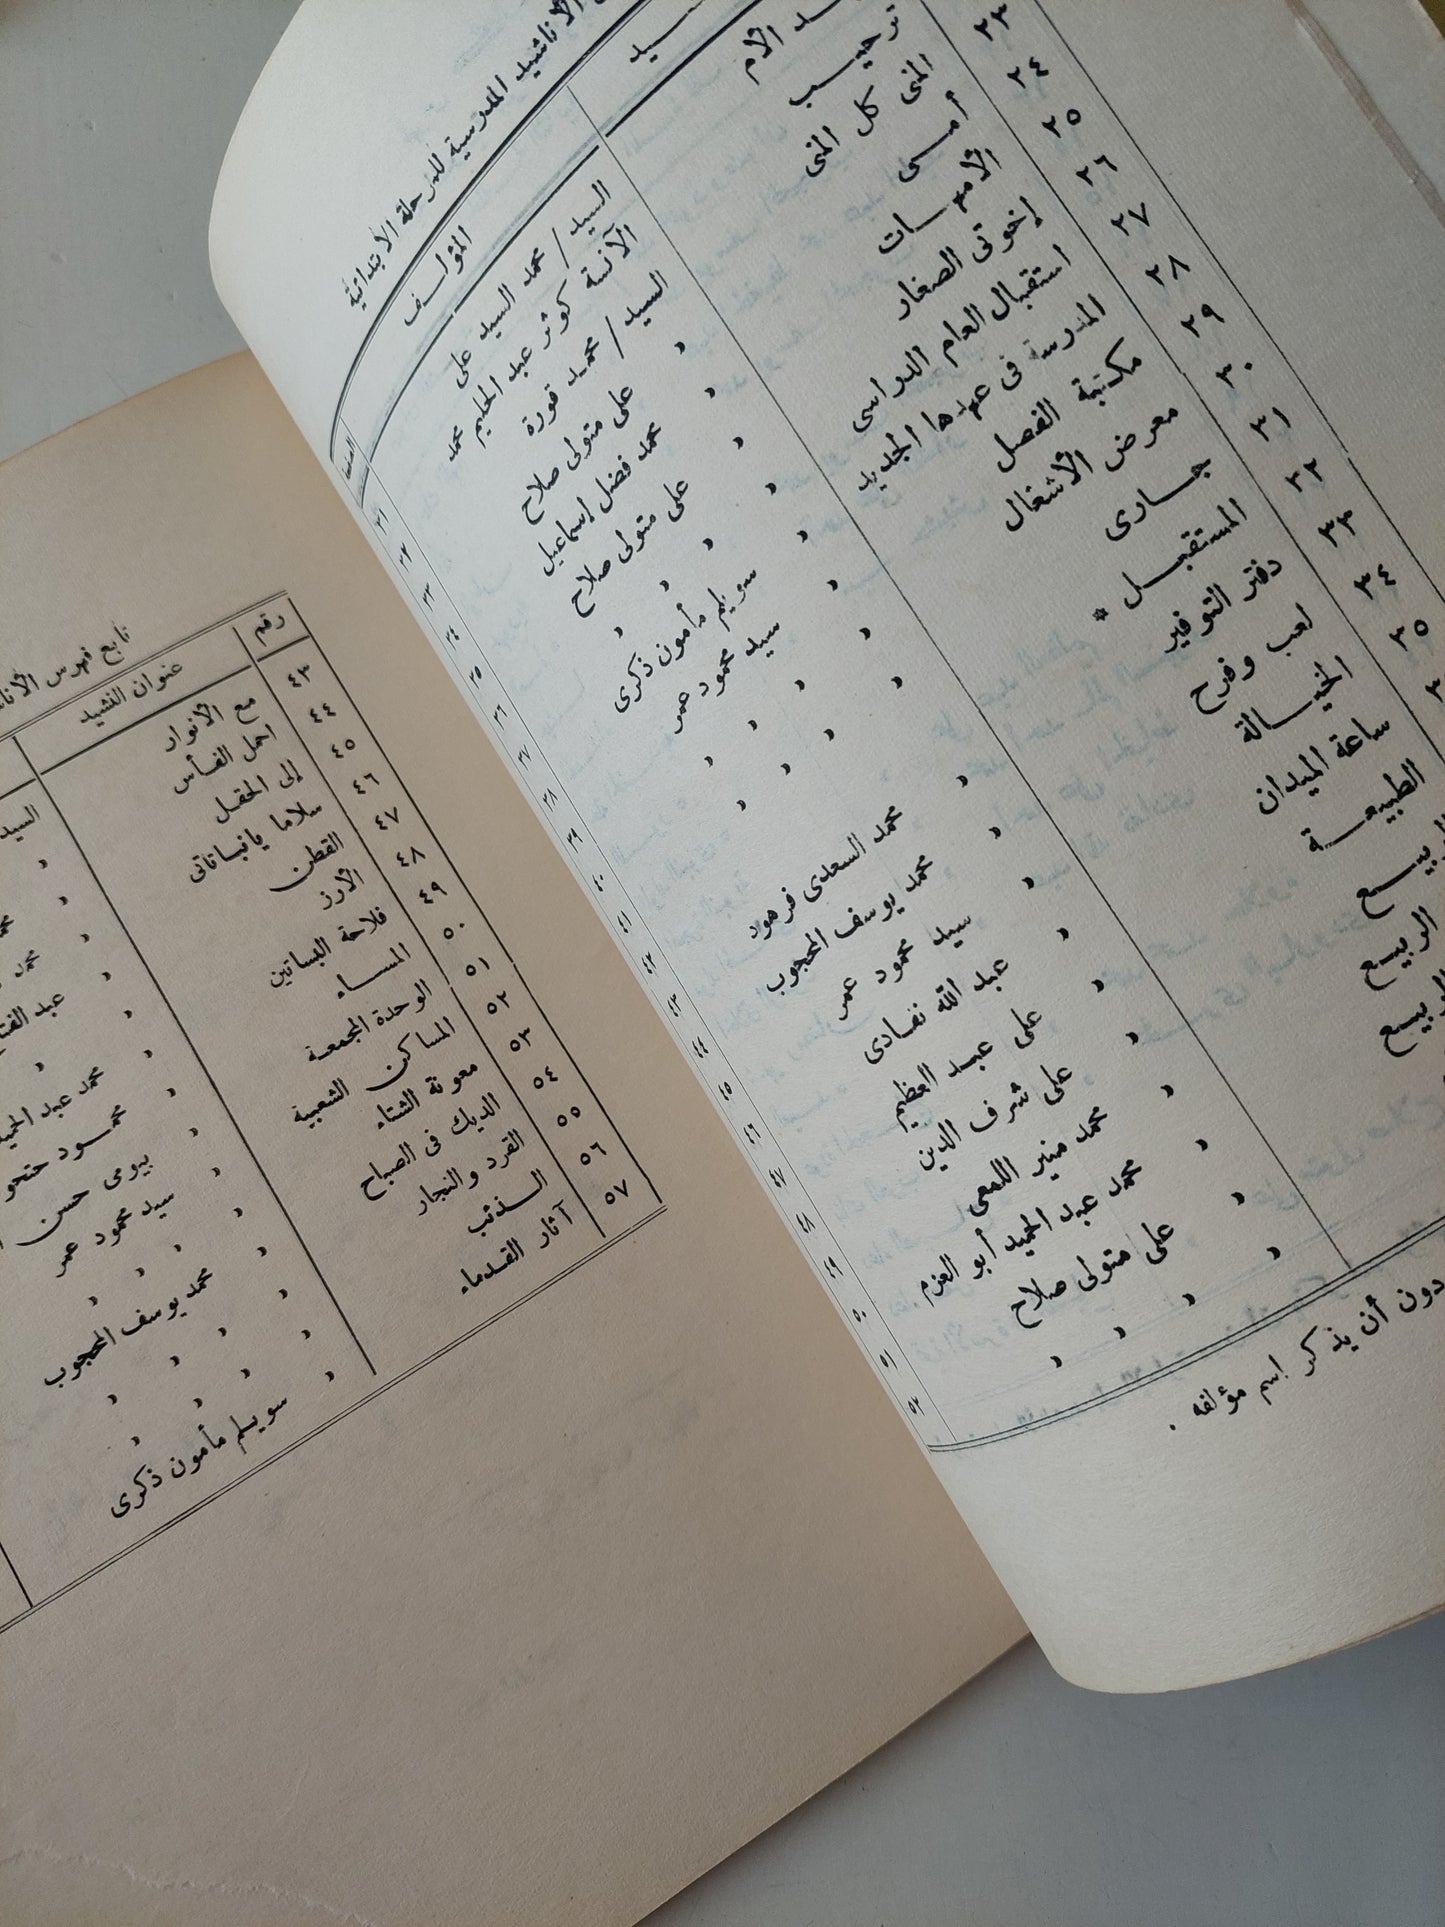 الأناشيد المدرسية للمرحلة الابتدائية
المؤلف
الصفحة
الأم
ترحيب
المنى كل المنى
أمسى
الأمهات
إخوتى الصغار
استقبال العام الدراسى
المدرسة فى عهدها الجديد
مكتبة الفصل
معرض الأشغال
جارى
المستقبل *
دفتر التوفير
لعب وفرح
الخيالة
ساعة الميدان
الطبيعة
الربيع
الربيع
الربيع
٢٣
٢٤
٢٥
٢٦
٢٧
٢٨
٢٩
٣٠
٣١
٣٢
٣٣
٣٤
٣٥
السيد / محمد السيد على
الآنسة كوثر عبد الحليم محمد
السيد / محمد قورة
» على متولى صلاح
» محمد فضل إسماعيل
» على متولى صلاح
» » » »
» سويلم مأمون ذكرى
» سيد محمود عمر
» » » »
» » » »
» محمد السعدى فرهود
» محمد يوسف المحجوب
» سيد محمود عمر
» عبد الله نفادى
» على عبد العظيم
» على شرف الدين
» محمد منير اللمعى
» محمد عبد الحميد أبو العزم
» على متولى صلاح
» » » »
٣١
٣٢
٣٣
٣٤
٣٥
٣٦
٣٧
٣٨
٣٩
٤٠
٤١
٤٢
٤٣
٤٤
٤٥
٤٦
٤٧
٤٨
٤٩
٥٠
٥١
٥٢
دون أن يذكر اسم مؤلفه .
تابع فهرس
رقم
عنوان النشيد
٤٣ مع الأنوار
٤٤ احمل الفأس
٤٥ إلى الحقل
٤٦ سلاما يا نباتاتى
٤٧ القطن
٤٨ الأرز
٤٩ فلاحة البساتين
٥٠ المساء
٥١ الوحدة المجمعة
٥٢ المساكن الشعبية
٥٣ معونة الشتاء
٥٤ الديك فى الصباح
٥٥ القرد والنجار
٥٦ الذئب
٥٧ آثار القدماء
السيد
محمد
عبد
» محمد عبد
» محمود
» بيومى حسن
» سيد محمود عمر
» » » »
» محمد يوسف المحجوب
» » » »
» » » »
» سويلم مأمون ذكرى